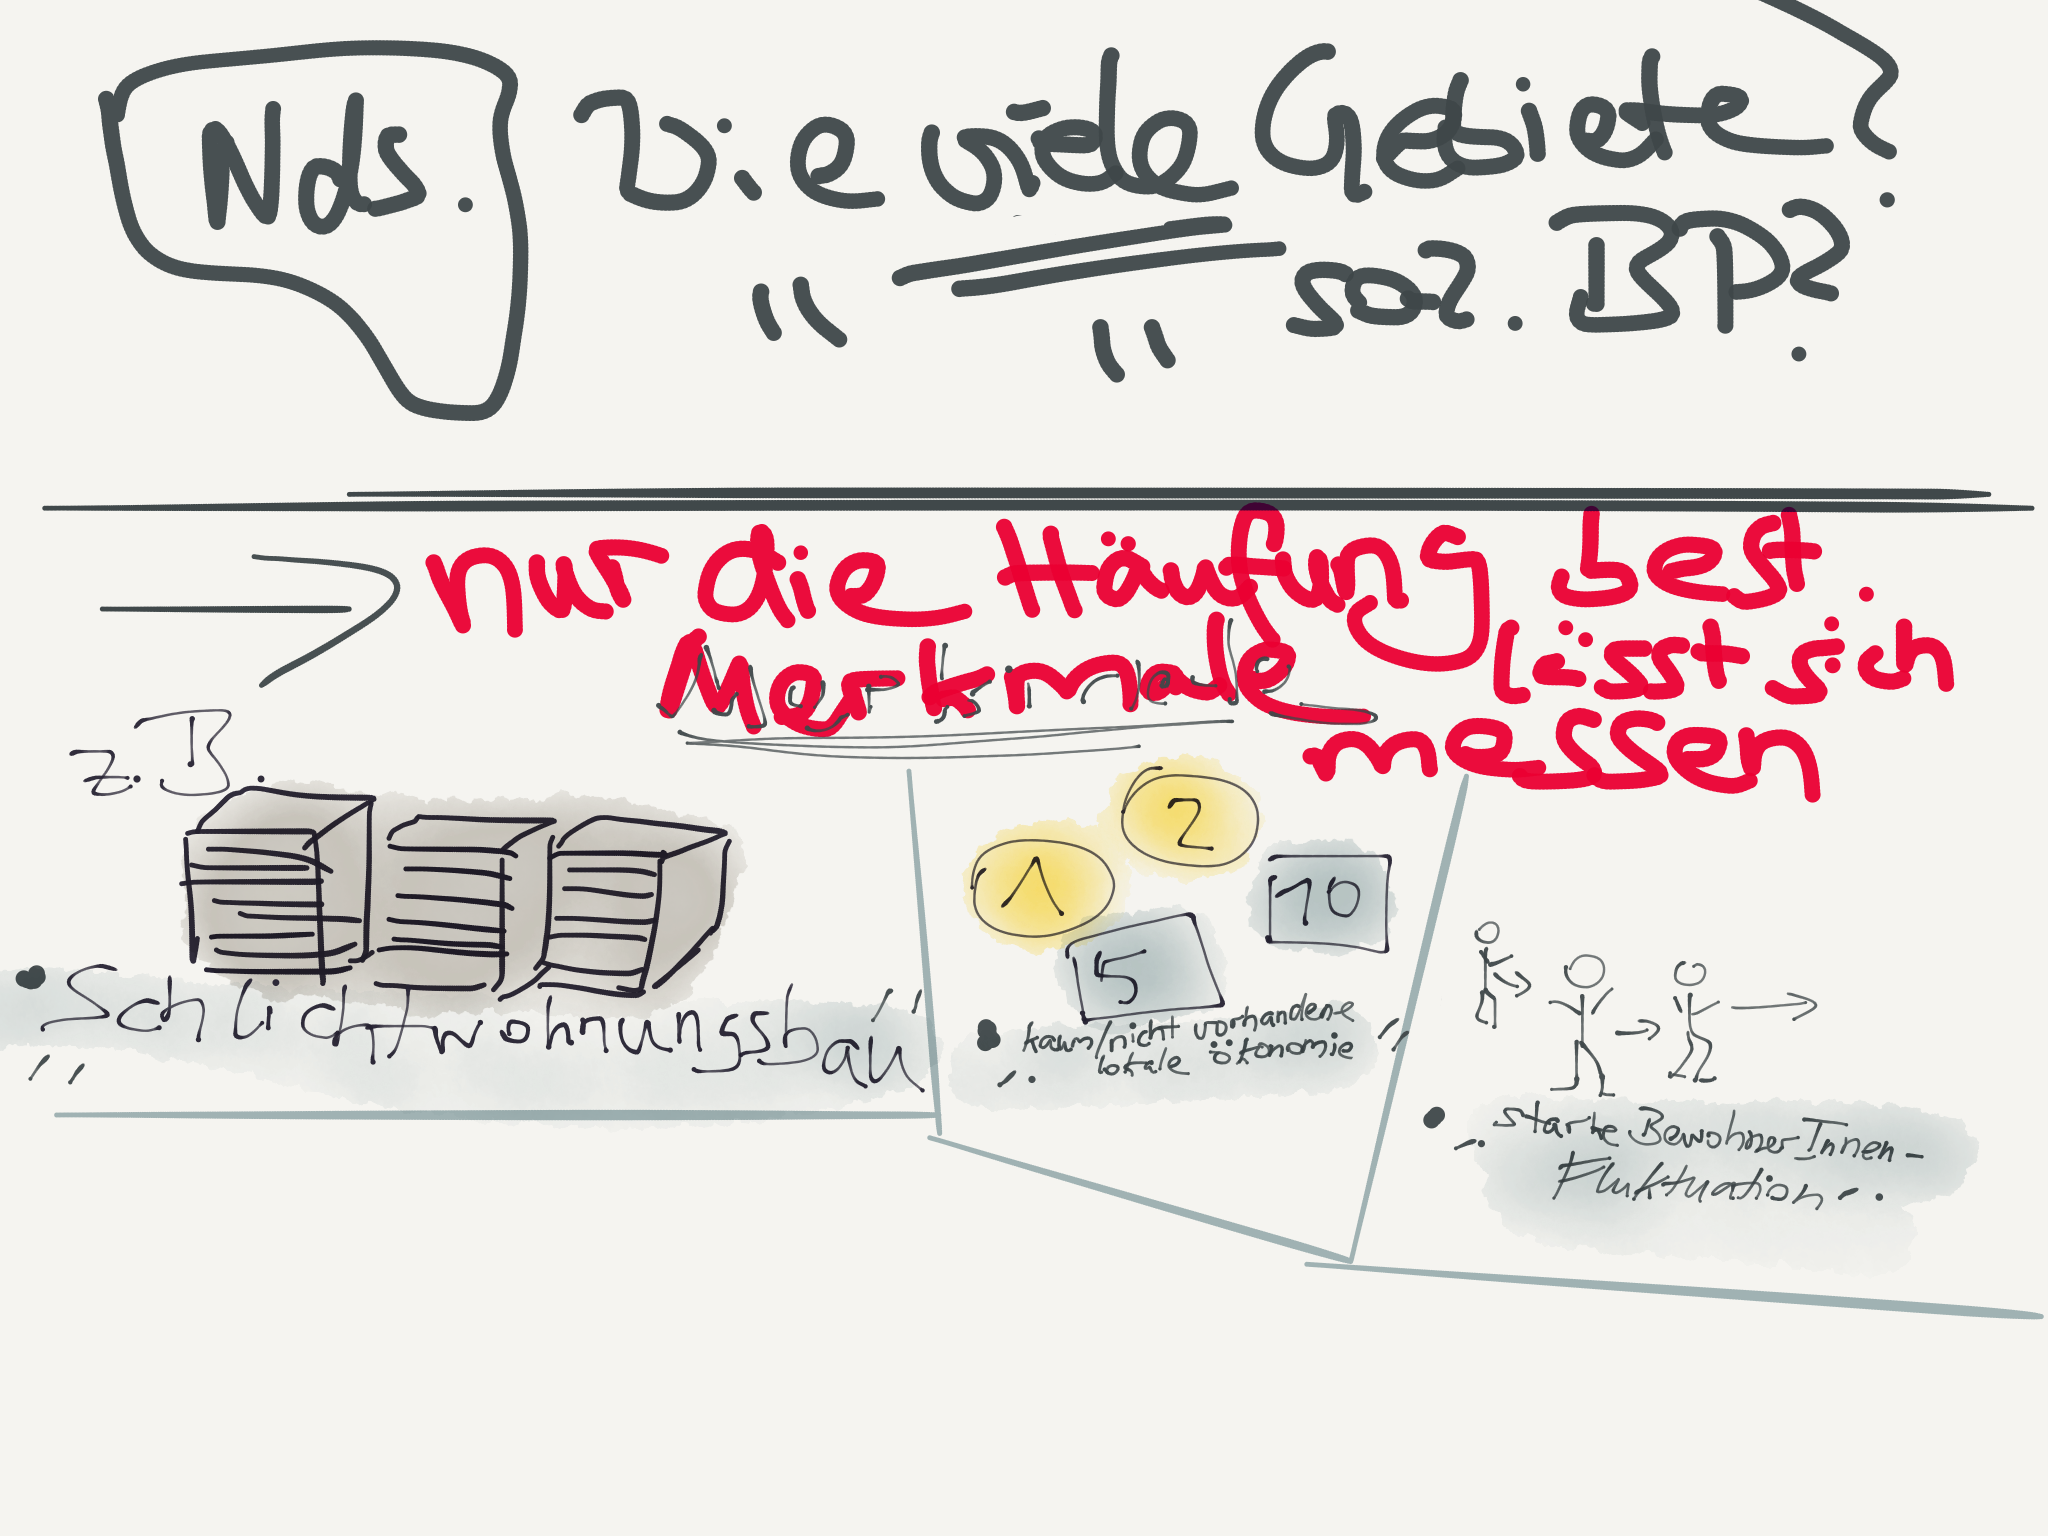 Nds.
Wie viele Gebiete?
" " soz. BP?
nur die Häufung best.
Merkmale lässt sich
messen
z.B.
• Schlichtwohnungsbau
1
2
5
10
• kaum/nicht vorhandene
lokale ökonomie
• starke BewohnerInnen-
Fluktuation